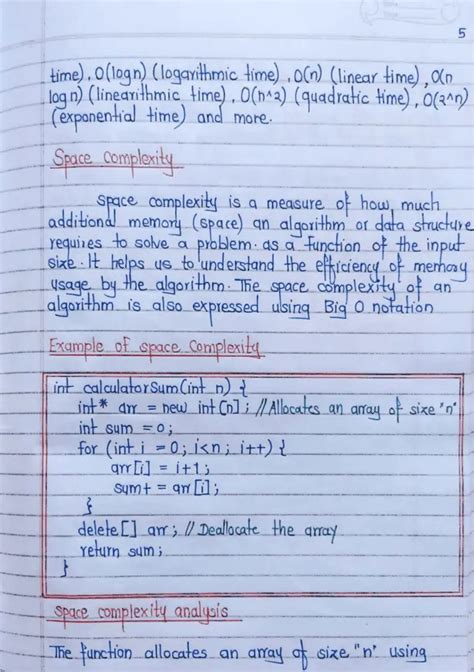 5
time), O(logn) (logarithmic time), O(n) (linear time), O(n
logn) (linearithmic time), O(n^2) (quadratic time), O(2^n)
(exponential time) and more.
Space complexity
Space complexity is a measure of how much
additional memory (space) an algorithm or data structure
requires to solve a problem. as a function of the input
size. It helps us to understand the efficiency of memory
usage by the algorithm. The space complexity of an
algorithm is also expressed using Big O notation
Example of space complexity
int calculatorSum(int n) {
int* arr = new int[n]; //Allocates an array of size "n"
int sum = 0;
for (int i = 0; i<n; i++) {
arr[i] = i+1;
sum+ = arr[i];
}
delete[] arr; // Deallocate the array
return sum;
}
space complexity analysis
The function allocates an array of size "n" using